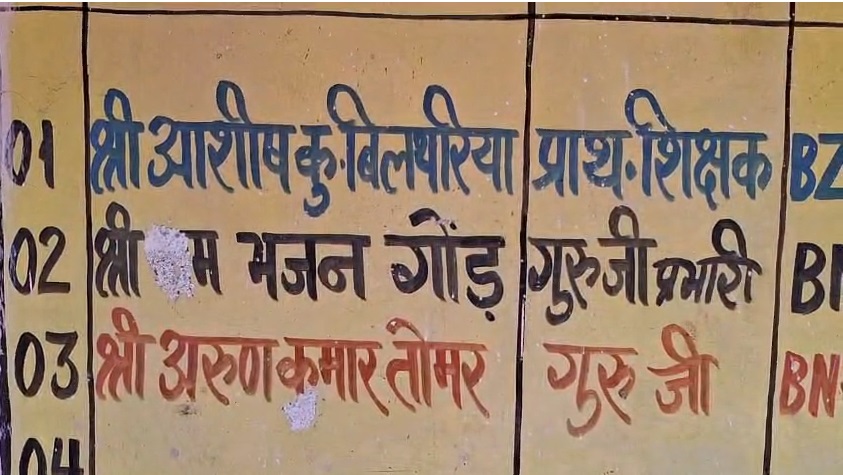 01 श्री आशीष कु. बिलथरिया प्राथ. शिक्षक BZ
02 श्री म भजन गोंड़ गुरुजी प्रभारी
03 श्री अरुण कमार तोमर गुरु जी BN
04